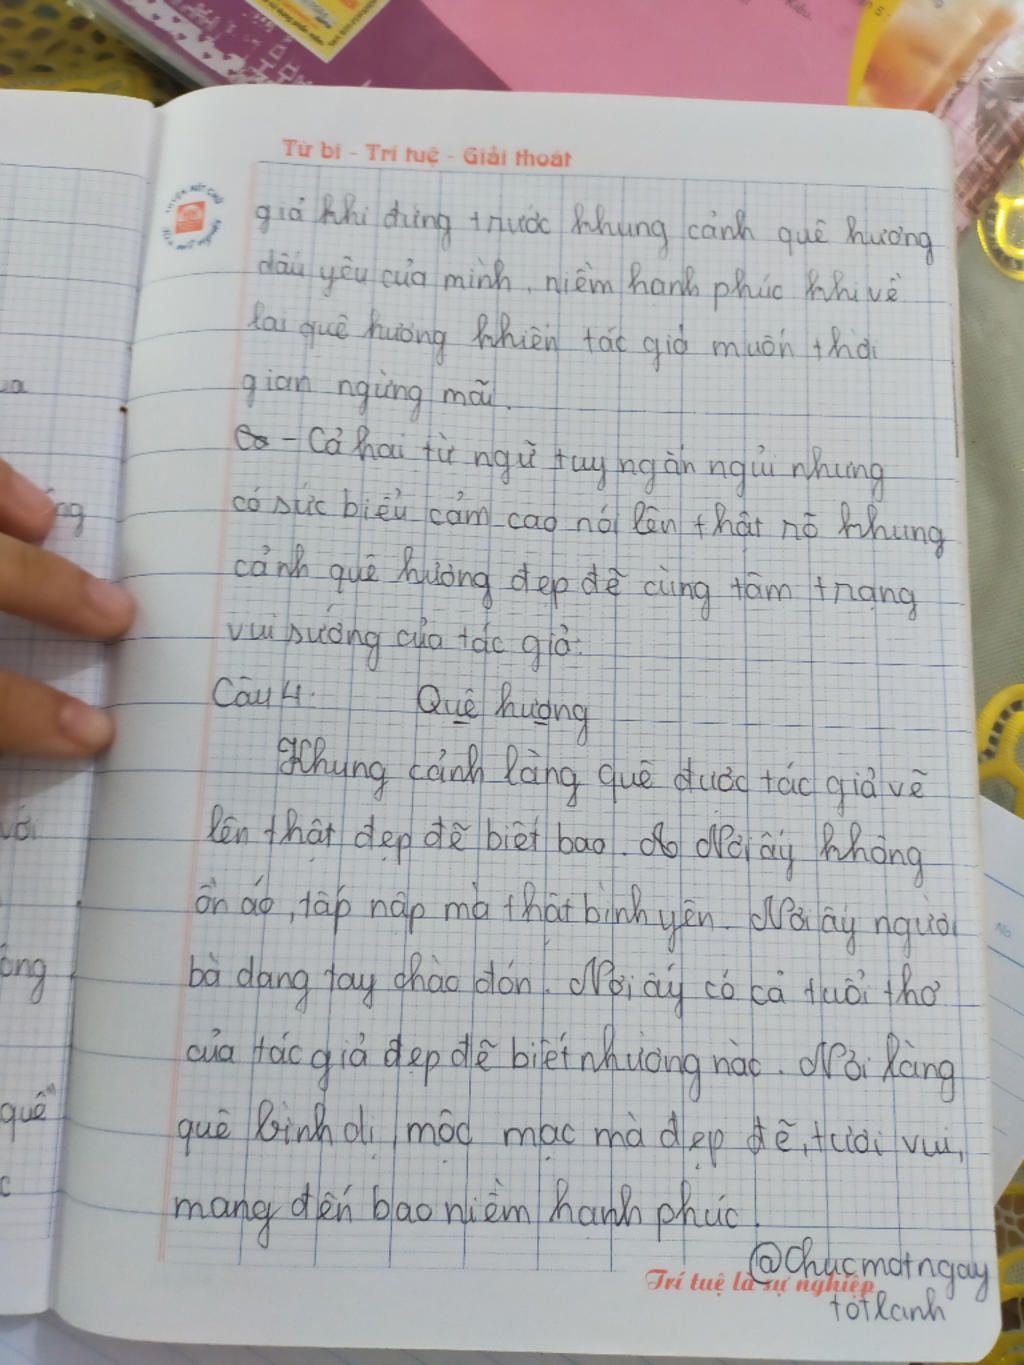 Từ bi - Trí tuệ - Giải thoát
giả khi đứng trước khung cảnh quê hương
dấu yêu của mình, niềm hạnh phúc khi về
lại quê hương khiến tác giả muốn thời
gian ngừng mãi.
- Cả hai từ ngữ tuy ngắn ngủi nhưng
có sức biểu cảm cao nói lên thật rõ khung
cảnh quê hương đẹp đẽ cùng tâm trạng
vui sướng của tác giả.
Câu 4. Quê hương
Khung cảnh làng quê được tác giả vẽ
lên thật đẹp đẽ biết bao. Nơi ấy không
ồn ào, tấp nập mà thật bình yên. Nơi ấy người
bà dang tay chào đón. Nơi ấy có cả tuổi thơ
của tác giả đẹp đẽ biết nhường nào. Nơi làng
quê bình dị mộc mạc mà đẹp đẽ, tươi vui,
mang đến bao niềm hạnh phúc.
@chucmotngay
totlanh
Trí tuệ là sự nghiệp
ua
ng
với
ông
quê
c